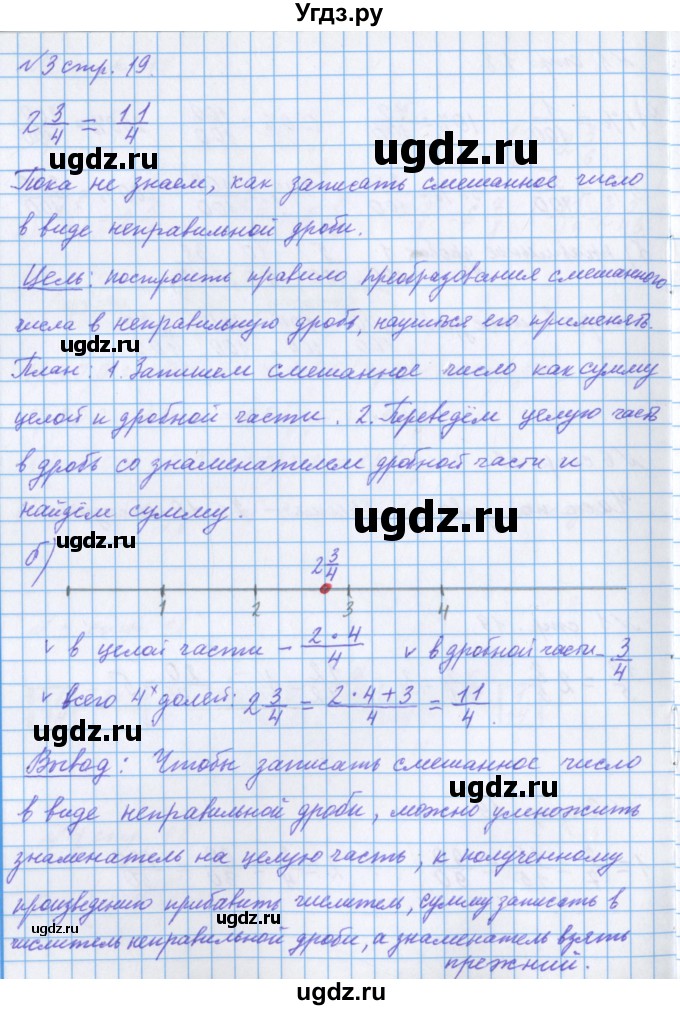 Угдз.ру
№3 стр. 19.
2 3/4 = 11/4
ugdz.ru ugdz.ru
Пока не знаем, как записать смешанное число
в виде неправильной дроби.
ugdz.ru ugdz.ru
Цель: построить правило преобразования смешанного
числа в неправильную дробь, научиться его применять.
ugdz.ru ugdz.ru
План: 1. Запишем смешанное число как сумму
целой и дробной части. 2. Переведём целую часть
в дробь со знаменателем дробной части и
найдём сумму.
ugdz.ru ugdz.ru
б)
2 3/4
1 2 3 4
v в целой части - 2·4/4 v в дробной части - 3/4
v всего 4х долей: 2 3/4 = 2·4+3/4 = 11/4.
ugdz.ru
Вывод: Чтобы записать смешанное число
ugdz.ru
в виде неправильной дроби, можно умножить
знаменатель на целую часть, к полученному
ugdz.ru
произведению прибавить числитель, сумму записать в
ugdz.ru
числитель неправильной дроби, а знаменатель взять
прежний.
ugdz.ru